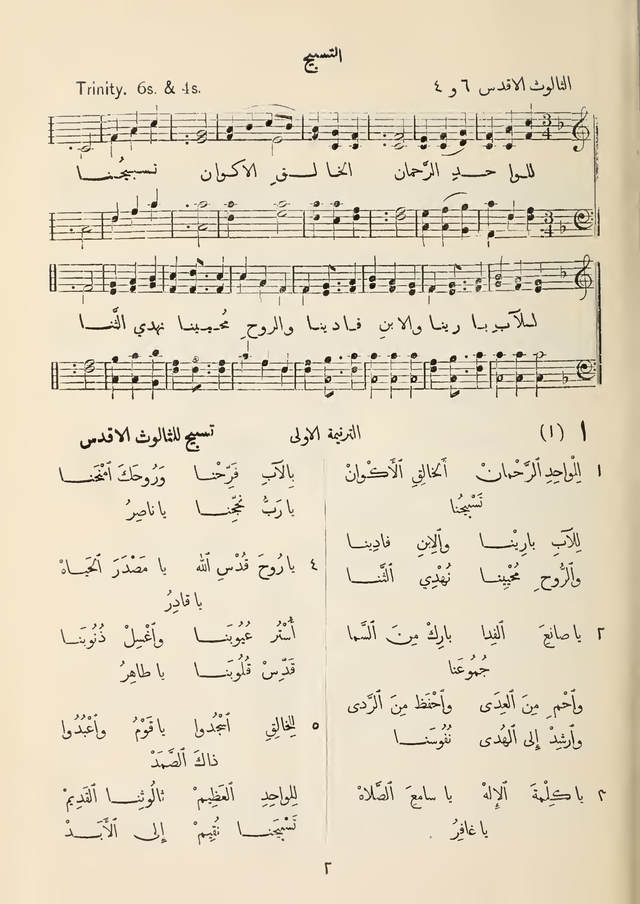 التسبيح
الثالوث الاقدس ٦ و ٤
Trinity. 6s. & 4s.
للوا حدِ الرَّحمان الخا لـقِ الاكوان تسبيحُنـا
لـلآبِ بـا رينا والابنِ فـاديـنا والروحِ مُحيـيـنا نهدي الثَّنـا
١ (١) الترنيمة الاولى تسبيح للثالوث الاقدس
١ لِلْوَاحِدِ ٱلرَّحْمَانْ أَلْخَالِقِ ٱلْأَكْوَانْ
تَسْبِيحُنَا
لِلآبِ بَارِينَا وَٱلِابْنِ فادِينا
وَٱلرُّوحِ مُحْيِينا نُهْدِي ٱلثَّنا
٢ يا صانِعَ ٱلفِدا بارِكْ مِنَ ٱلسَّما
جُمُوعَنا
وَٱحْمِ مِنَ ٱلعِدَى وَٱحْفَظْ مِنَ ٱلرَّدى
وَٱرشِدْ إِلى ٱلهُدى نُفُوسَنا
٣ يا كَلِمَةَ ٱلإِلهْ يا سامِعَ ٱلصَّلاهْ
يا غافِرُ
بِالآبِ فَرِّحْنا وَرُوحَكَ ٱمْنَحْنا
يا رَبُّ نَجِّنا يا ناصِرُ
٤ يا رُوحَ قُدْسِ ٱلله يا مَصْدَرَ ٱلحَياهْ
يا قادِرُ
أُسْتُرْ عُيُوبَنا وَٱغْسِلْ ذُنُوبَنا
قَدِّسْ قُلُوبَنا يا طاهِرُ
٥ لِلخالِقِ ٱسْجُدُوا يا قَوْمُ وَٱعْبُدُوا
ذاكَ ٱلصَّمَدْ
لِلواحِدِ ٱلعَظِيمْ ثالُوثِنا ٱلقَدِيمْ
تَسْبِيحَنا نُقِيمْ إِلى ٱلأَبَدْ
٢